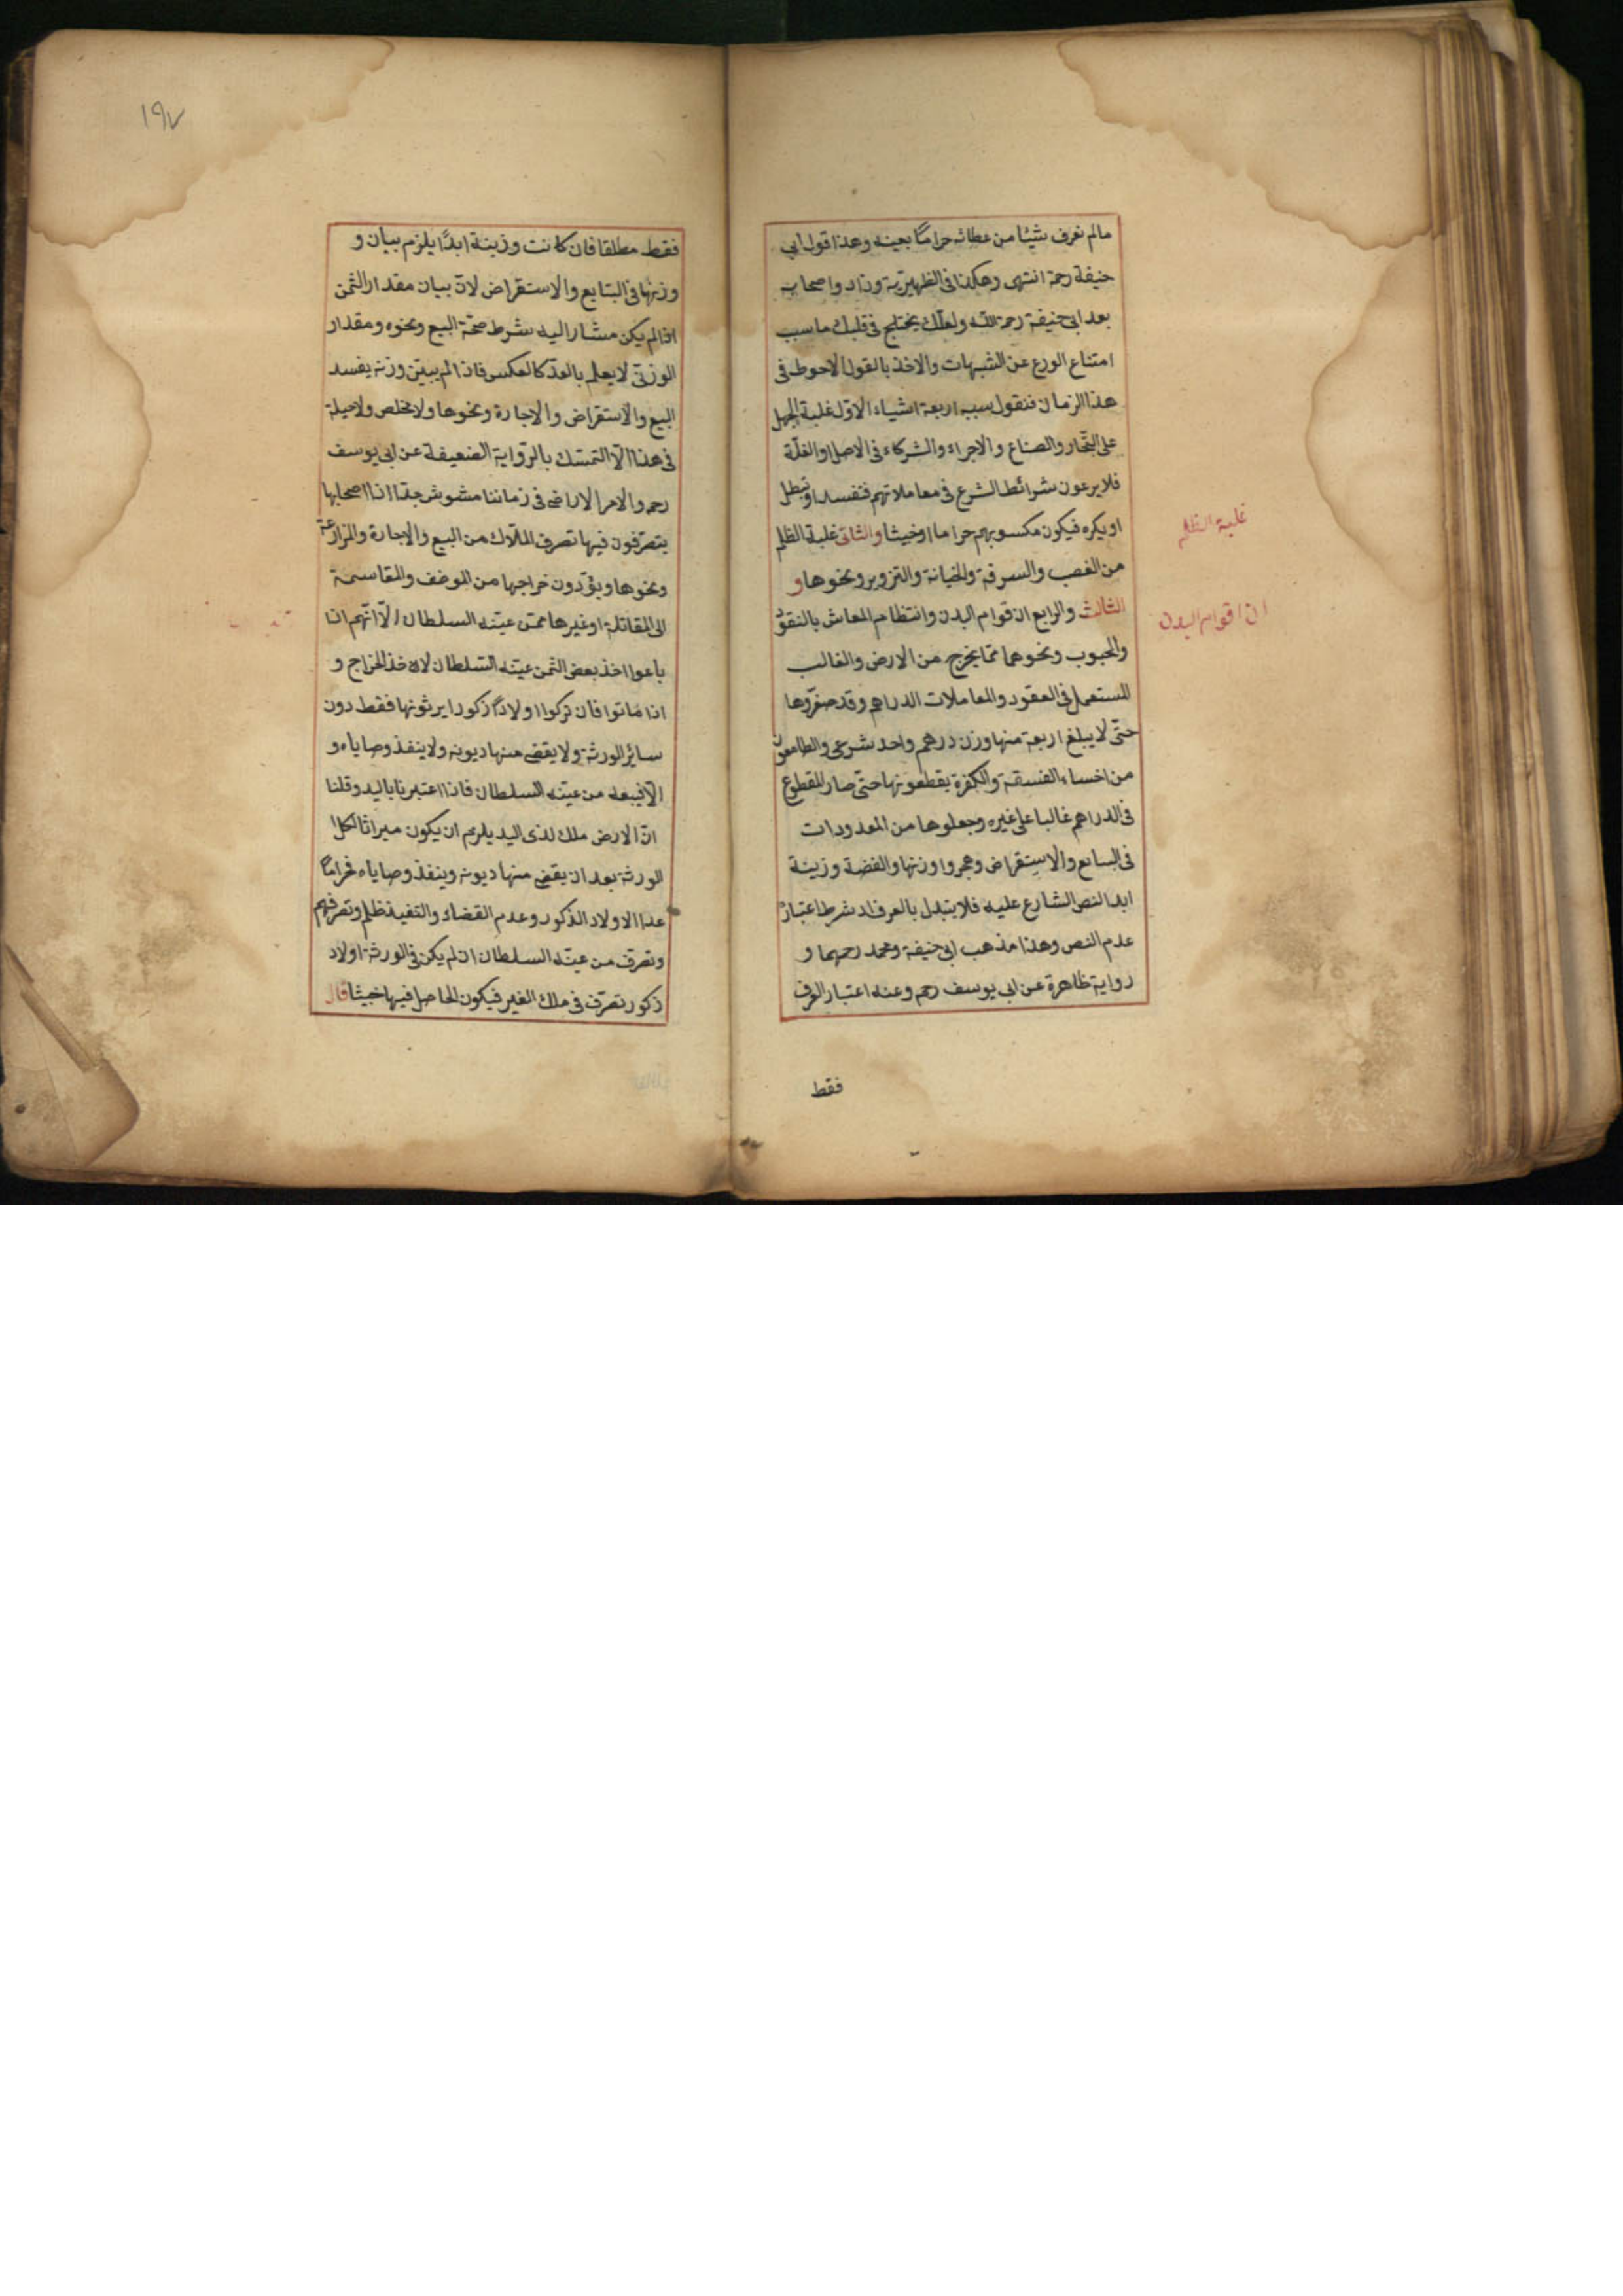 مالم نعرف شيئا من عطائه حراماً بعينه وهذا قول ابى
حنيفة رحمة انتهى وهكذا فى الظهيرية وزاد واصحابه
بعد ابى حنيفة رحمة الله ولعلّك يختلج فى قلبك ما سبب
امتناع الورع عن الشبهات والاخذ بالقول الاحوط فى
هذا الزمان فنقول سببه اربعة اشياء الاوّل غلبة الجهل
على التجّار والصناع والاجراء والشركاء فى الاصل او الغلّة
فلا يرعون شرائط الشرع فى معاملاتهم فتفسد او تبطل
او يكره فيكون مكسوبهم حراما او خبيثا والثانى غلبة الظلم
من الغصب والسرقة والخيانة والتزوير ونحوها و
الثالث والرابع ان قوام البدن وانتظام المعاش بالنقود
والحبوب ونحوهما ممّا يخرج من الارض والغالب
المستعمل فى العقود والمعاملات الدراهم وقد صغّروها
حتّى لا يبلغ اربعة منها وزن درهم واحد شرعى والطامعون
من اخساء الفسقة والكفرة يقطعونها حتّى صار المقطوع
فى الدراهم غالبا على غيره وجعلوها من المعدودات
فى البيايع والاستقراض وهجروا وزنها والفضة وزينة
ابدا لنص الشارع عليه فلا يتبدل بالعرف اذ شرط اعتباره
عدم النص وهذا مذهب ابى حنيفة ومحمد رحمهما و
رواية ظاهرة عن ابى يوسف رحم وعنه اعتبار العرف
فقط
غلبة الظلم
ان قوام البدن
١٩٧
فقط مطلقا فان كانت وزينة ابدًا يلزم بيان و
وزنها فى البتايع والاستقراض لانّ بيان مقدار الثمن
اذا لم يكن مشارا اليه شرط صحّة البيع ونحوه ومقدار
الوزنى لا يعلم بالعدّ كالعكس فاذا لم يبيّن وزنه يفسد
البيع والاستقراض والاجارة ونحوها ولا مخلص ولا حيلة
فى هذا الّا التمسّك بالرّواية الضعيفة عن ابى يوسف
رحم والامر الاراضى فى زماننا مشوش جدّا اذا اصحابها
يتصرّفون فيها تصرف الملّاك من البيع والاجارة والمزارعة
ونحوها ويؤدون خراجها من الموضف والمقاسمة
الى المقاتلة او غيرها ممّن عيّنه السلطان الّا انّهم اذا
باعوا اخذ بعض الثمن عيّنه السّلطان لاخذ الخراج و
اذا ماتوا فان تركوا اولادًا ذكورا يرثونها فقط دون
سائر الورثة ولا يقضى منها ديونه ولا ينفذ وصاياه و
الّا فيبيعه من عيّنه السلطان فاذا اعتبرنا باليد وقلنا
انّ الارض ملك لذى اليد يلزم ان يكون ميراثا لكل
الورثة بعد ان يقضى منها ديونه وينفذ وصاياه فحراماً
عدا الاولاد الذكور وعدم القضاء والتنفيذ ظلم وتصرفهم
وتصرف من عيّنه السلطان ان لم يكن فى الورثة اولاد
ذكور تصرّف فى ملك الغير فيكون الحاصل فيها خبيثا قال